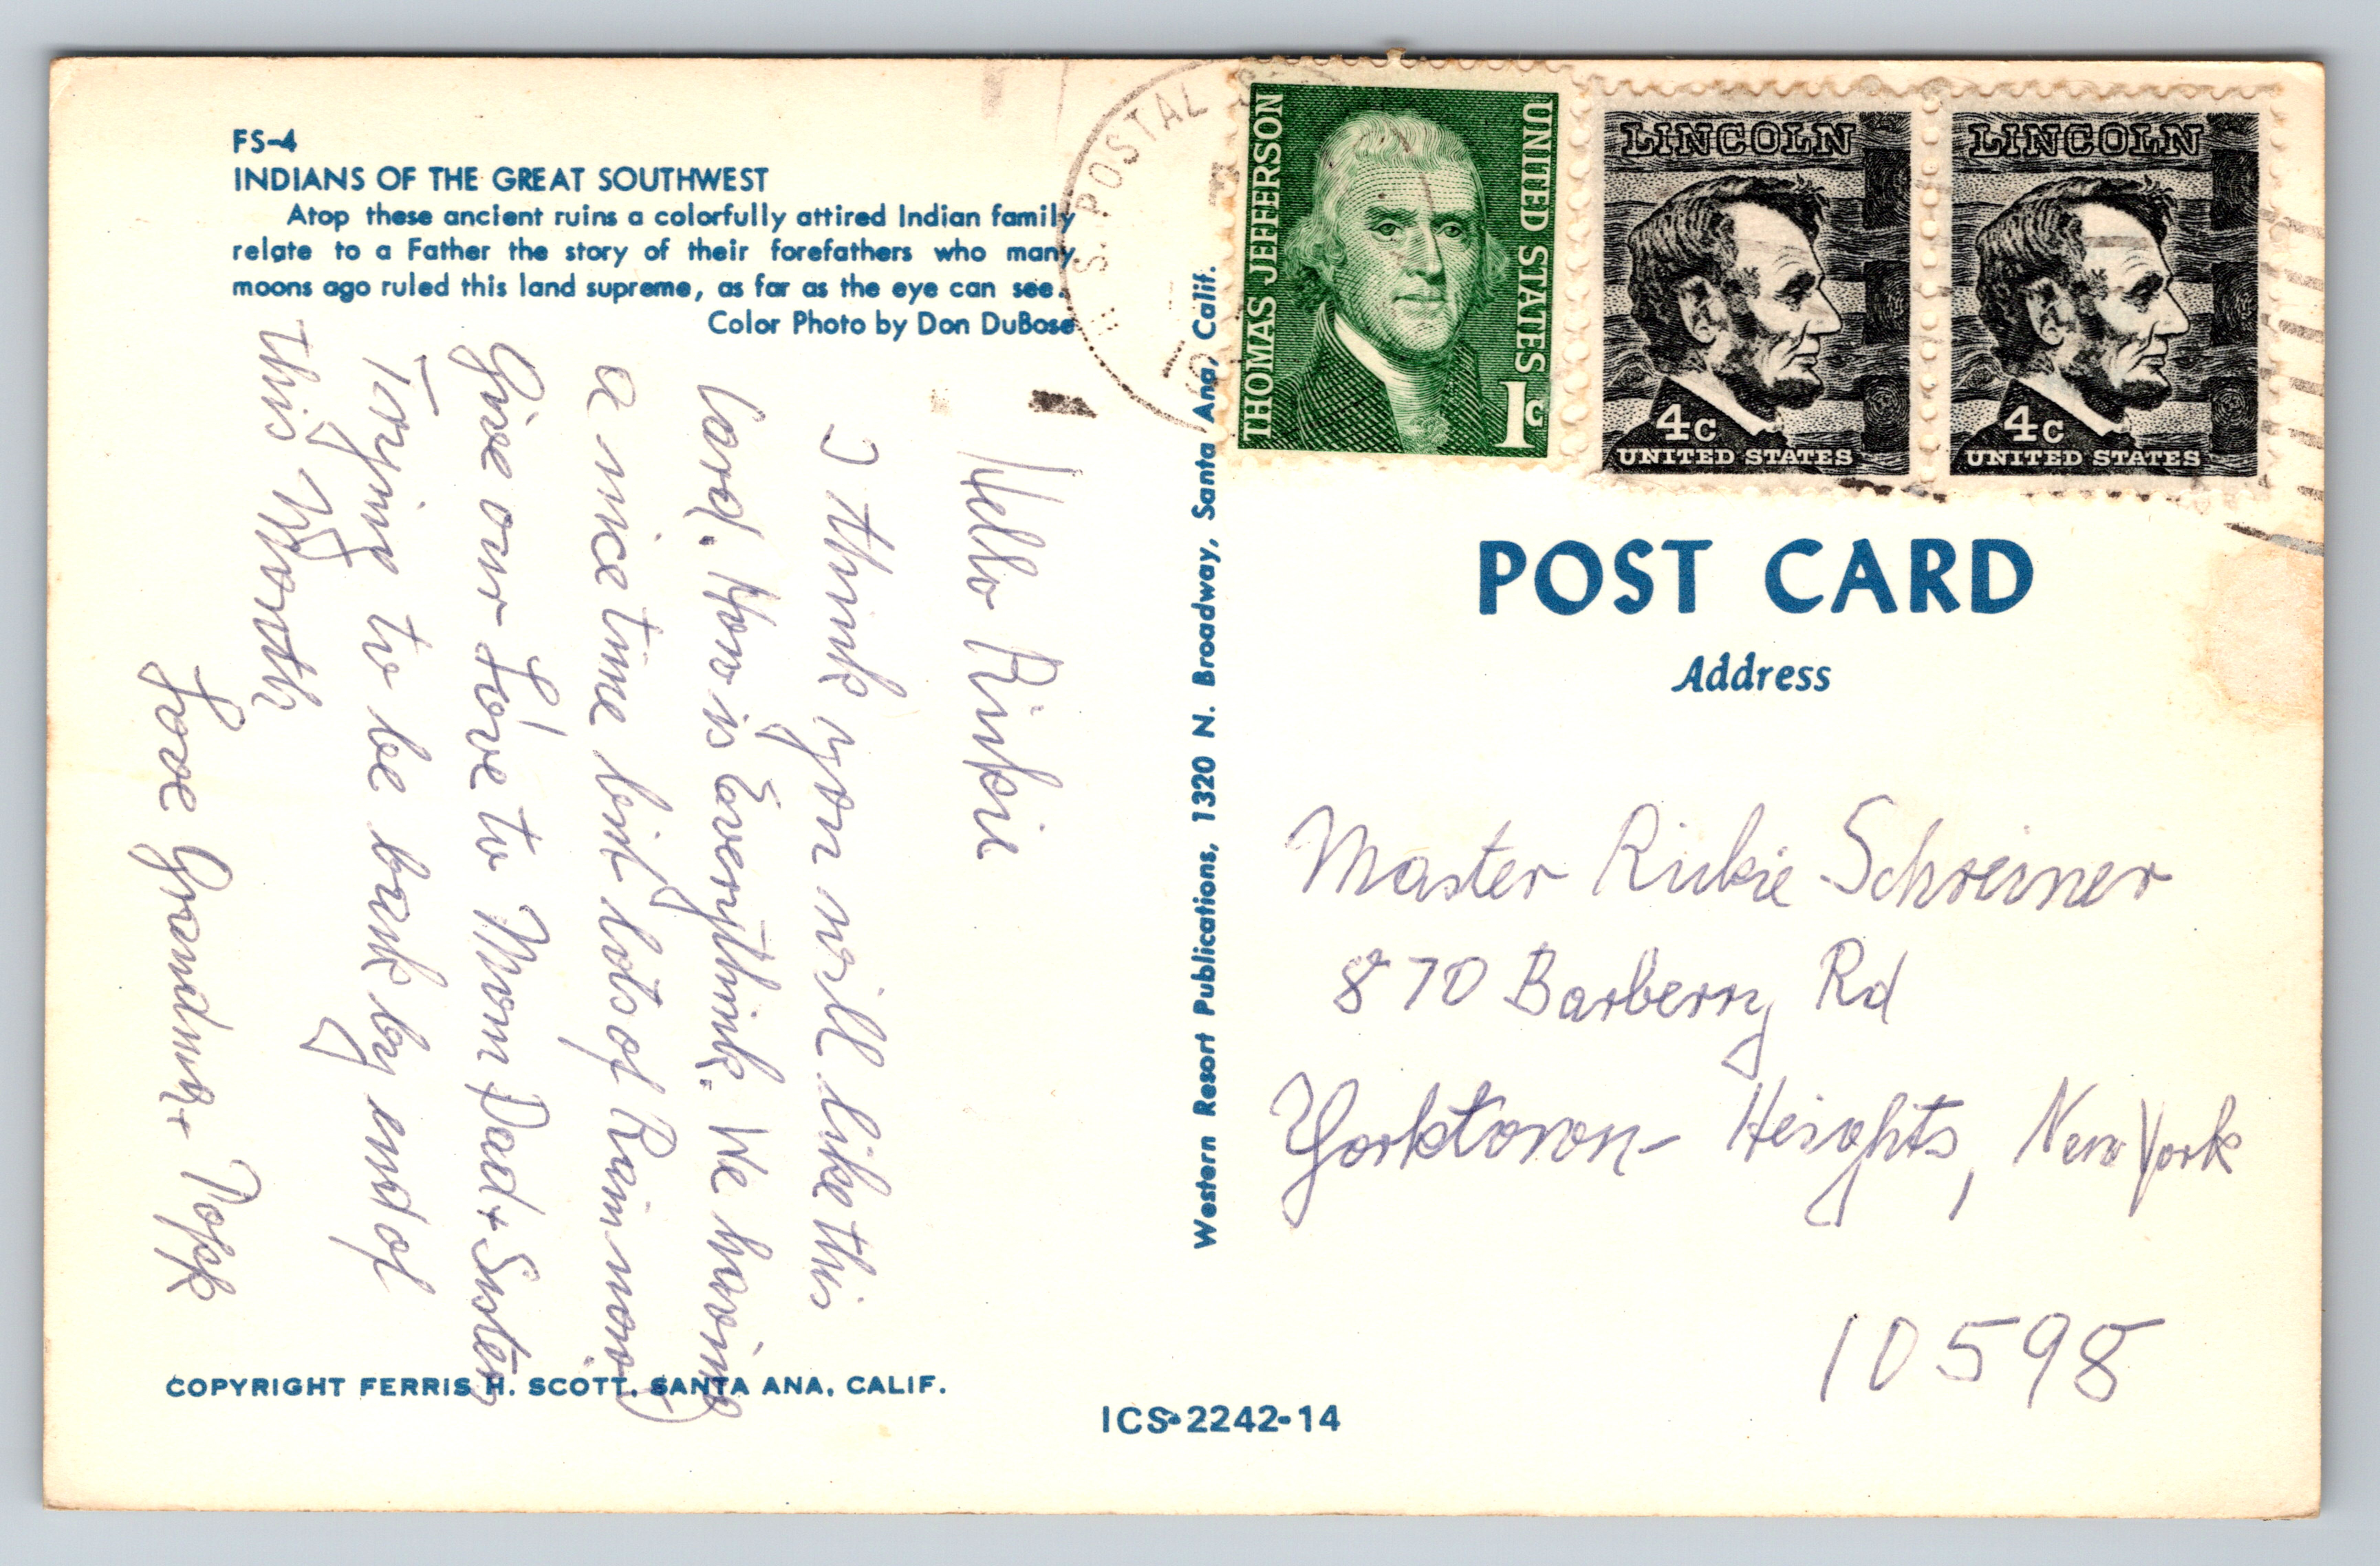 FS-4
INDIANS OF THE GREAT SOUTHWEST
Atop these ancient ruins a colorfully attired Indian family
relate to a Father the story of their forefathers who many
moons ago ruled this land supreme, as far as the eye can see.
Color Photo by Don DuBose
Hello Rickie
I think you will like this
Card. How is Everythink. We having
a nice time but lots of Rain now
Give our Love to Mom Dad + Sister
Trying to be back by end of
this Month
Love Grandma + Popp
COPYRIGHT FERRIS H. SCOTT, SANTA ANA, CALIF.
Western Resort Publications, 1320 N. Broadway, Santa Ana, Calif.
ICS-2242-14
U.S. POSTAL
THOMAS JEFFERSON
UNITED STATES
1c
LINCOLN
4c
UNITED STATES
LINCOLN
4c
UNITED STATES
POST CARD
Address
Master Rickie Schreiner
870 Barberry Rd
Yorktown- Heights, New York
10598